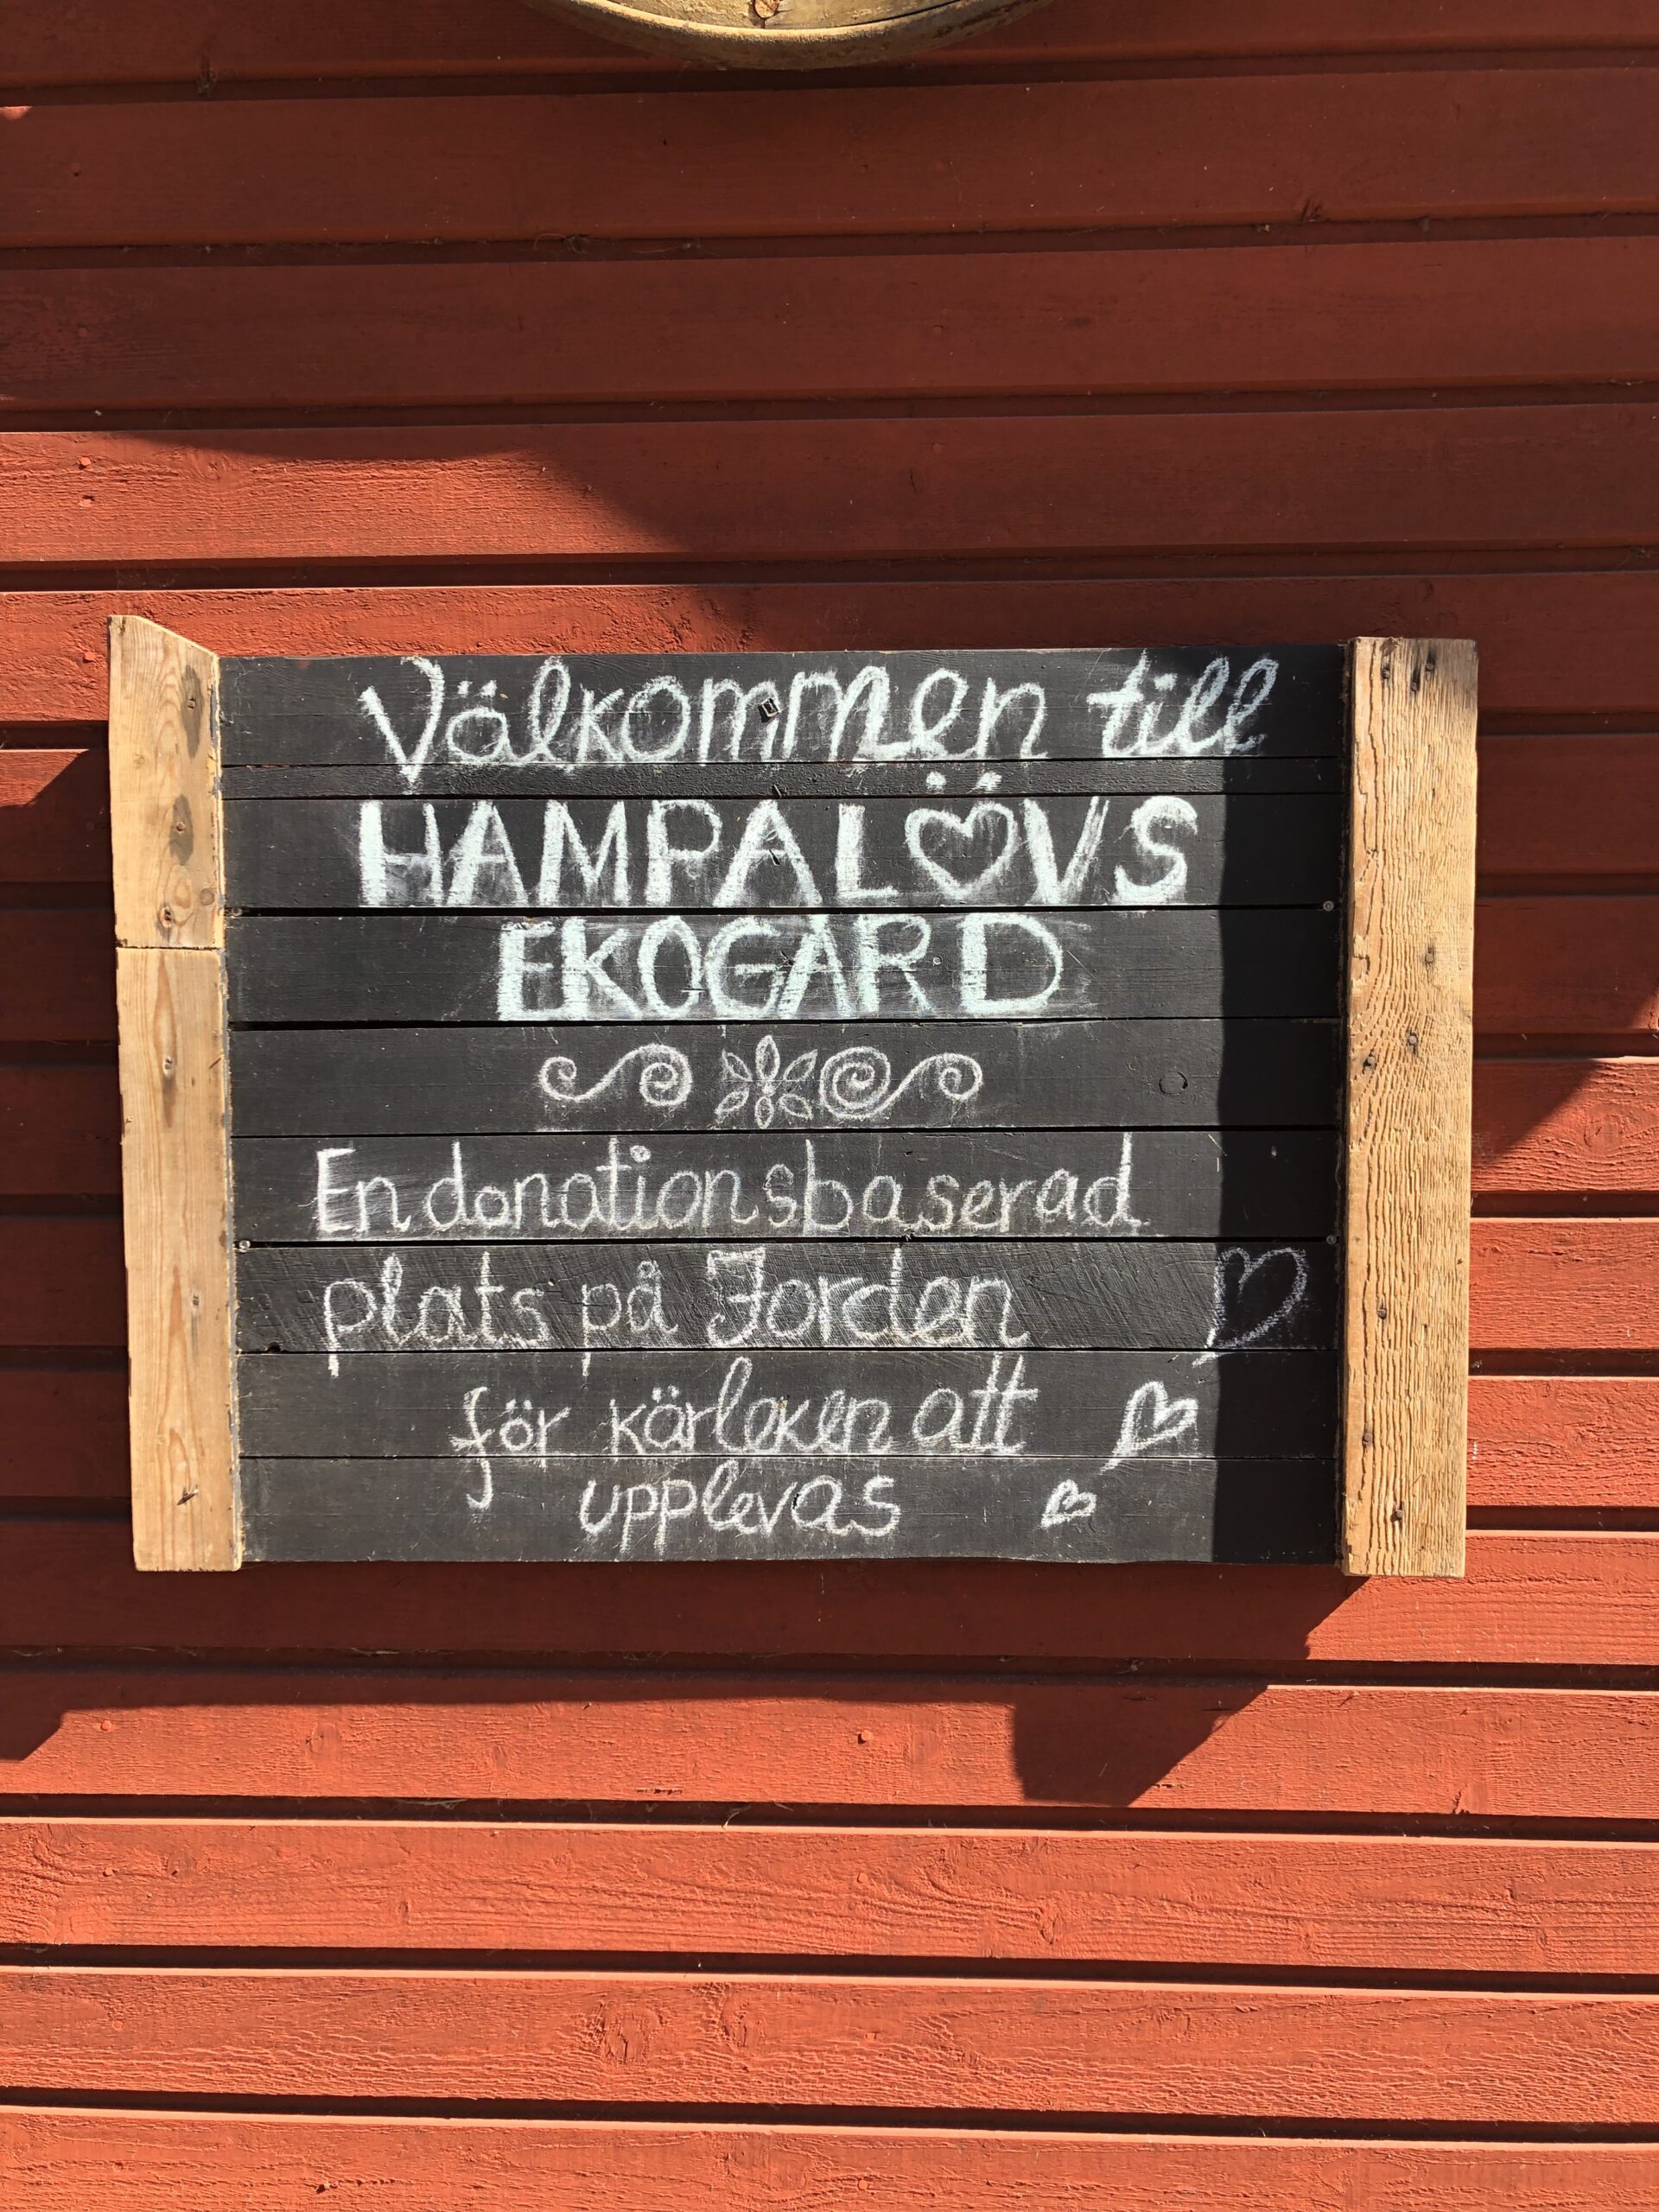 Välkommen till
HAMPALÖVS
EKOGARD
En donationsbaserad
plats på Jorden
för kärleken att
upplevas